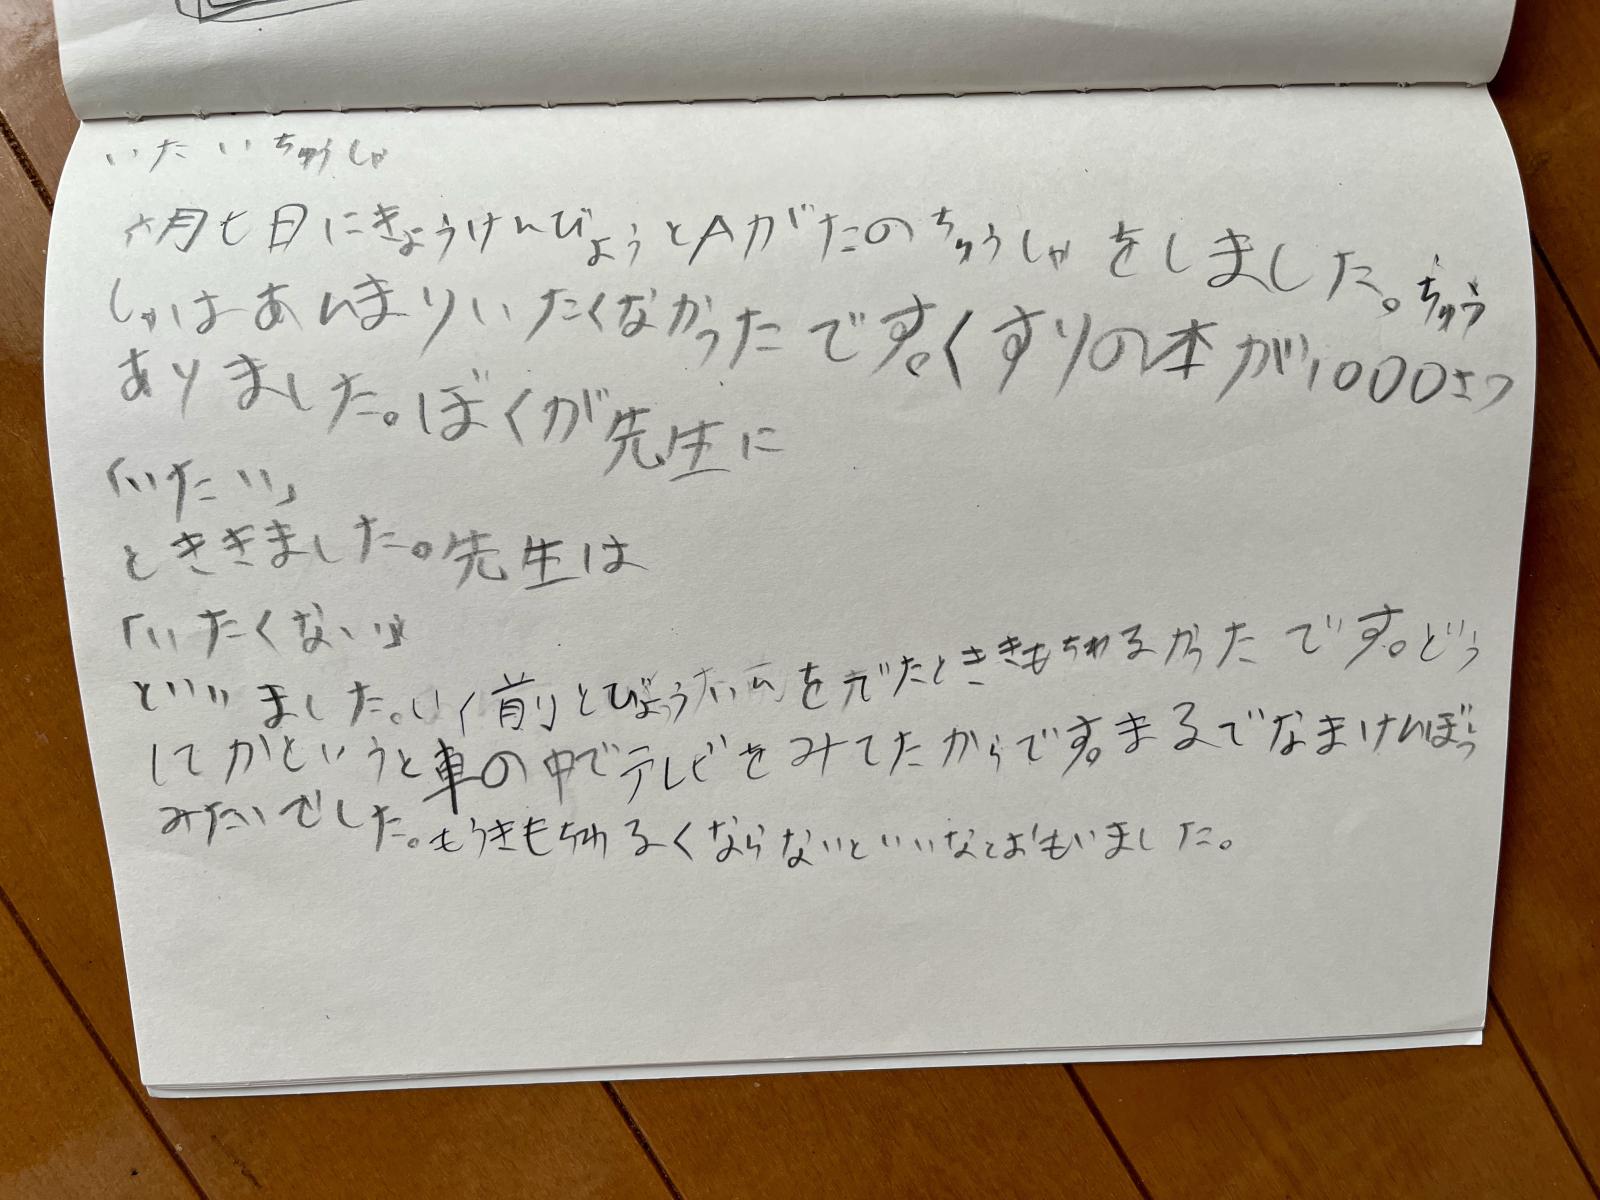 いたいちゅうしゃ
六月七日にきょうけんびょうとAがたのちゅうしゃをしました。ちゅう
しゃはあんまりいたくなかったです。くすりの本が1000さつ
ありました。ぼくが先生に
「いたい」
とききました。先生は
「いたくないよ」
といいました。いく前とびょういんをでたとききもちわるかったです。どう
してかというと車の中でテレビをみてたからです。まるでなまけんぼう
みたいでした。もうきもちわるくならないといいなとおもいました。